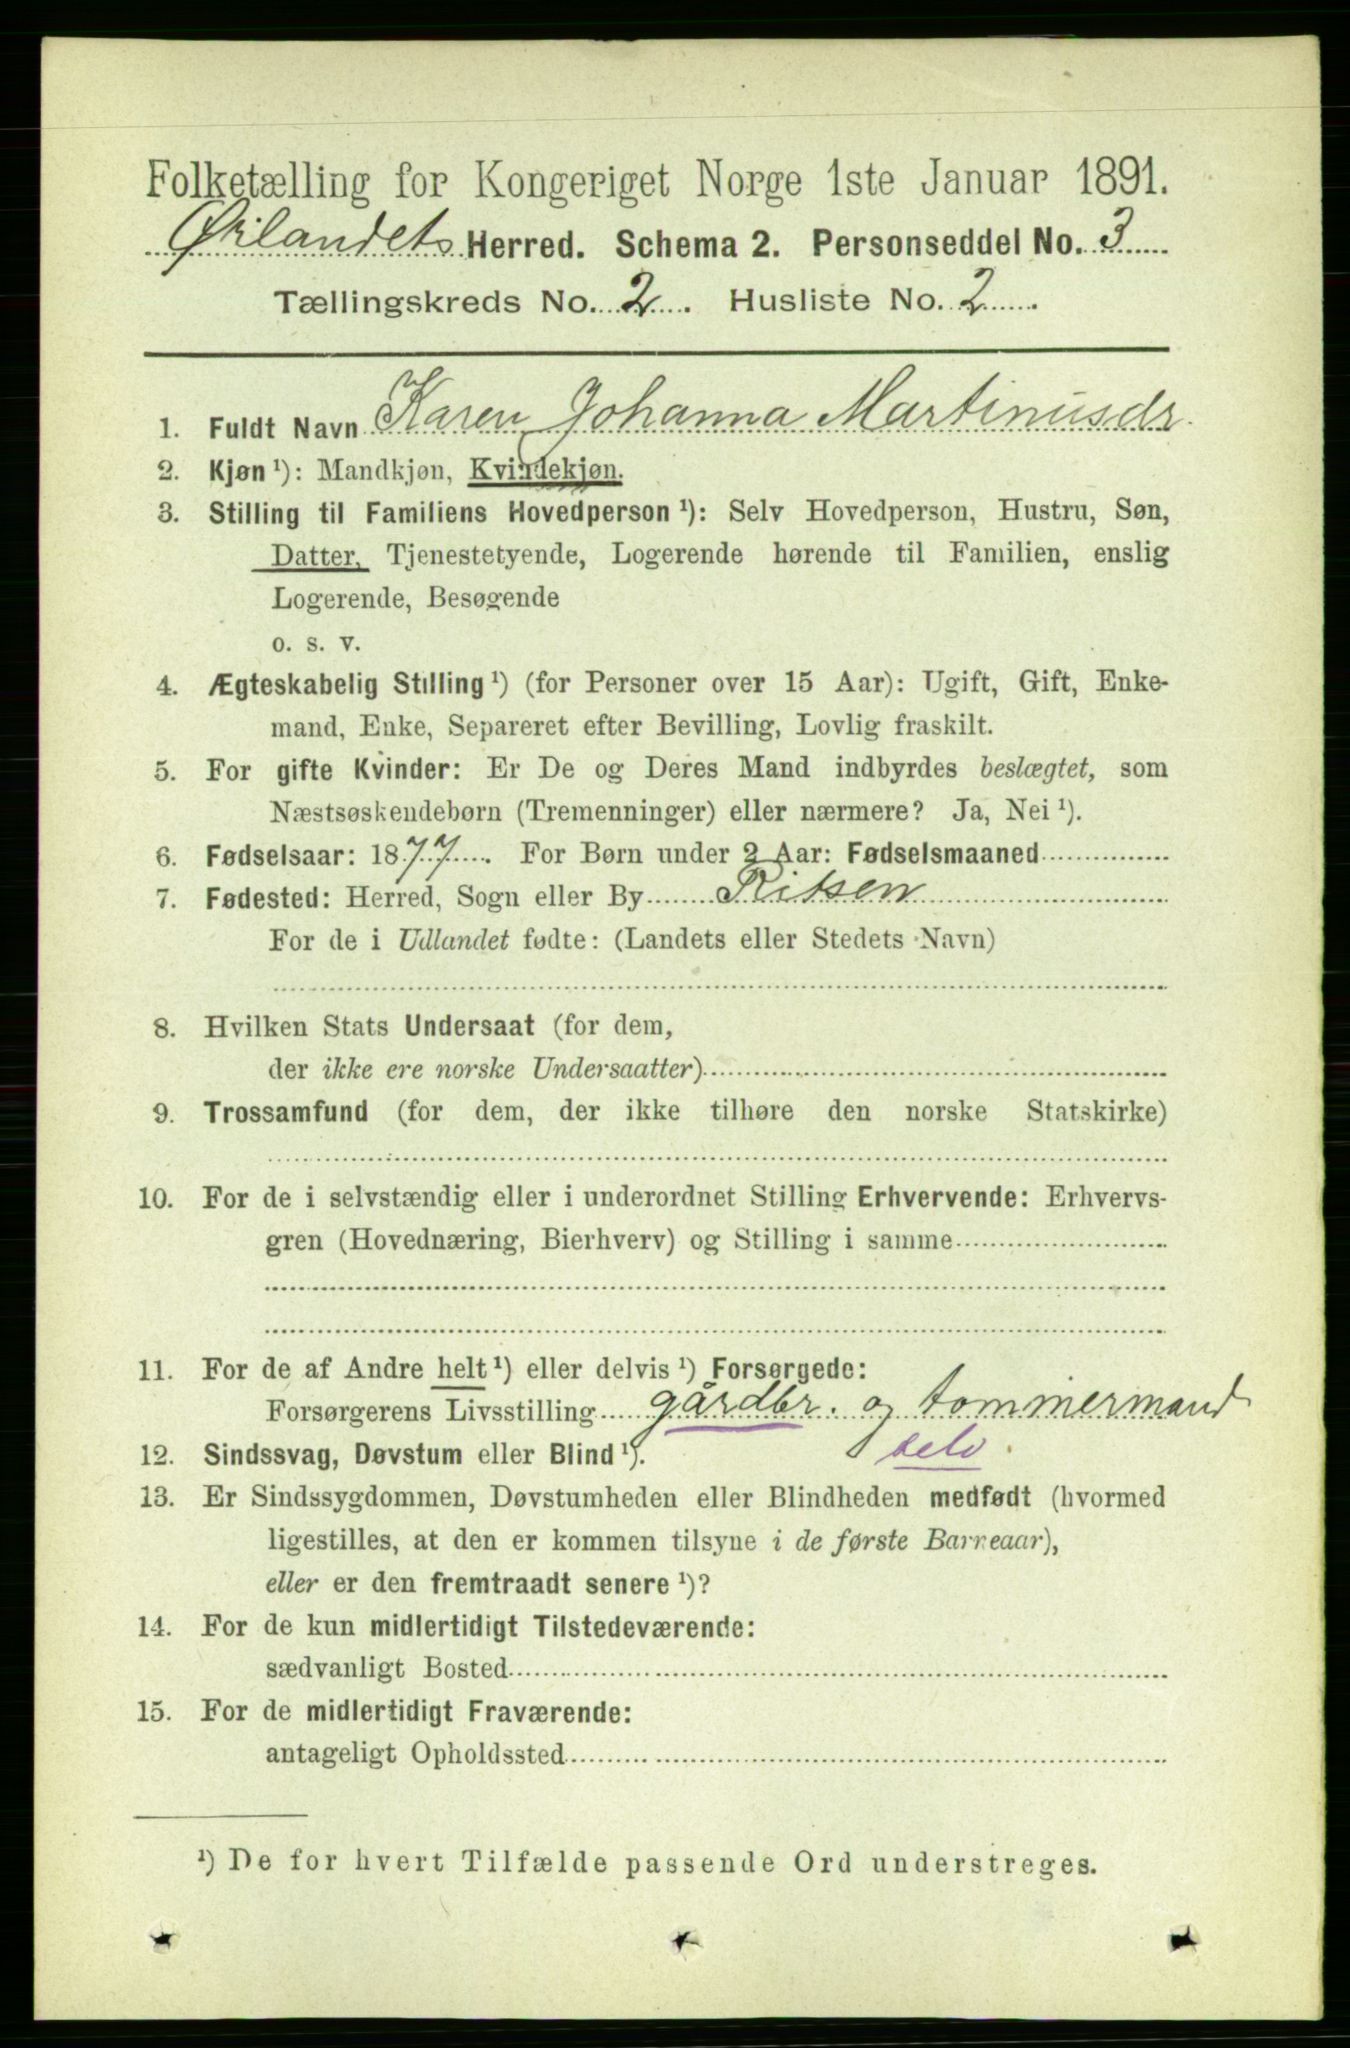 Folketælling for Kongeriget Norge 1ste Januar 1891.
Ørlandets Herred. Schema 2. Personseddel No. 3
Tællingskreds No. 2. Husliste No. 2
1. Fuldt Navn Karen Johanna Martinusdr.
2. Kjøn ¹): Mandkjøn, Kvindekjøn.
3. Stilling til Familiens Hovedperson ¹): Selv Hovedperson, Hustru, Søn,
Datter, Tjenestetyende, Logerende hørende til Familien, enslig
Logerende, Besøgende
o. s. v.
4. Ægteskabelig Stilling ¹) (for Personer over 15 Aar): Ugift, Gift, Enke-
mand, Enke, Separeret efter Bevilling, Lovlig fraskilt.
5. For gifte Kvinder: Er De og Deres Mand indbyrdes beslægtet, som
Næstsøskendebørn (Tremenninger) eller nærmere? Ja, Nei ¹).
6. Fødselsaar: 1877. For Børn under 2 Aar: Fødselsmaaned
7. Fødested: Herred, Sogn eller By Ritsen
For de i Udlandet fødte: (Landets eller Stedets Navn)
8. Hvilken Stats Undersaat (for dem,
der ikke ere norske Undersaatter)
9. Trossamfund (for dem, der ikke tilhøre den norske Statskirke)
10. For de i selvstændig eller i underordnet Stilling Erhvervende: Erhvervs-
gren (Hovednæring, Bierhverv) og Stilling i samme
11. For de af Andre helt ¹) eller delvis ¹) Forsørgede:
Forsørgerens Livsstilling gårdbr. og tommermand
selv
12. Sindssvag, Døvstum eller Blind ¹).
13. Er Sindssygdommen, Døvstumheden eller Blindheden medfødt (hvormed
ligestilles, at den er kommen tilsyne i de første Barneaar),
eller er den fremtraadt senere ¹)?
14. For de kun midlertidigt Tilstedeværende:
sædvanligt Bosted
15. For de midlertidigt Fraværende:
antageligt Opholdssted
¹) De for hvert Tilfælde passende Ord understreges.